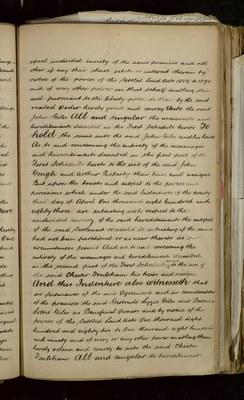 equal undivided moiety of the same premises and all
other if any their share estate or interest therein by
virtue of the powers of the Settled Land Acts 1882 to 1890
and of every other power in that behalf enabling them
and pursuant to the liberty given to them by the said
recited Order hereby grant and convey unto the said
John Giles All and singular the messuages and
hereditaments described in the First Schedule hereto To
Hold the same unto the said John Giles and his heirs
As to and concerning the entirety of the messuages
and hereditaments described in the first part of the
First Schedule hereto to the use of the said John
Gough and Arthur their heirs and assigns
But upon the trusts and subject to the powers and
provisions which under the said Indenture of the twenty
third day of April One thousand eight hundred and
eighty three are subsisting with respect to the
undivided moiety of the said hereditaments the subject
of the said Settlement or would be subsisting if the same
had not been partitioned or as near thereto as
circumstances permit And as to and concerning the
entirety of the messuages and hereditaments described
in the second part of the First Schedule to the use of
the said Chester his heirs and assigns
And this Indenture also witnesseth that
in pursuance of the said Agreement and in consideration
of the premises the said Gertrude Lizzie Giles and
Lottie Giles as Beneficial Owners and by virtue of the
powers of the Settled Land Acts One thousand eight
hundred and eighty two to One thousand eight hundred
and ninety and of every or any other power enabling them
hereby release and convey to unto the said Chester
All and singular the hereditaments